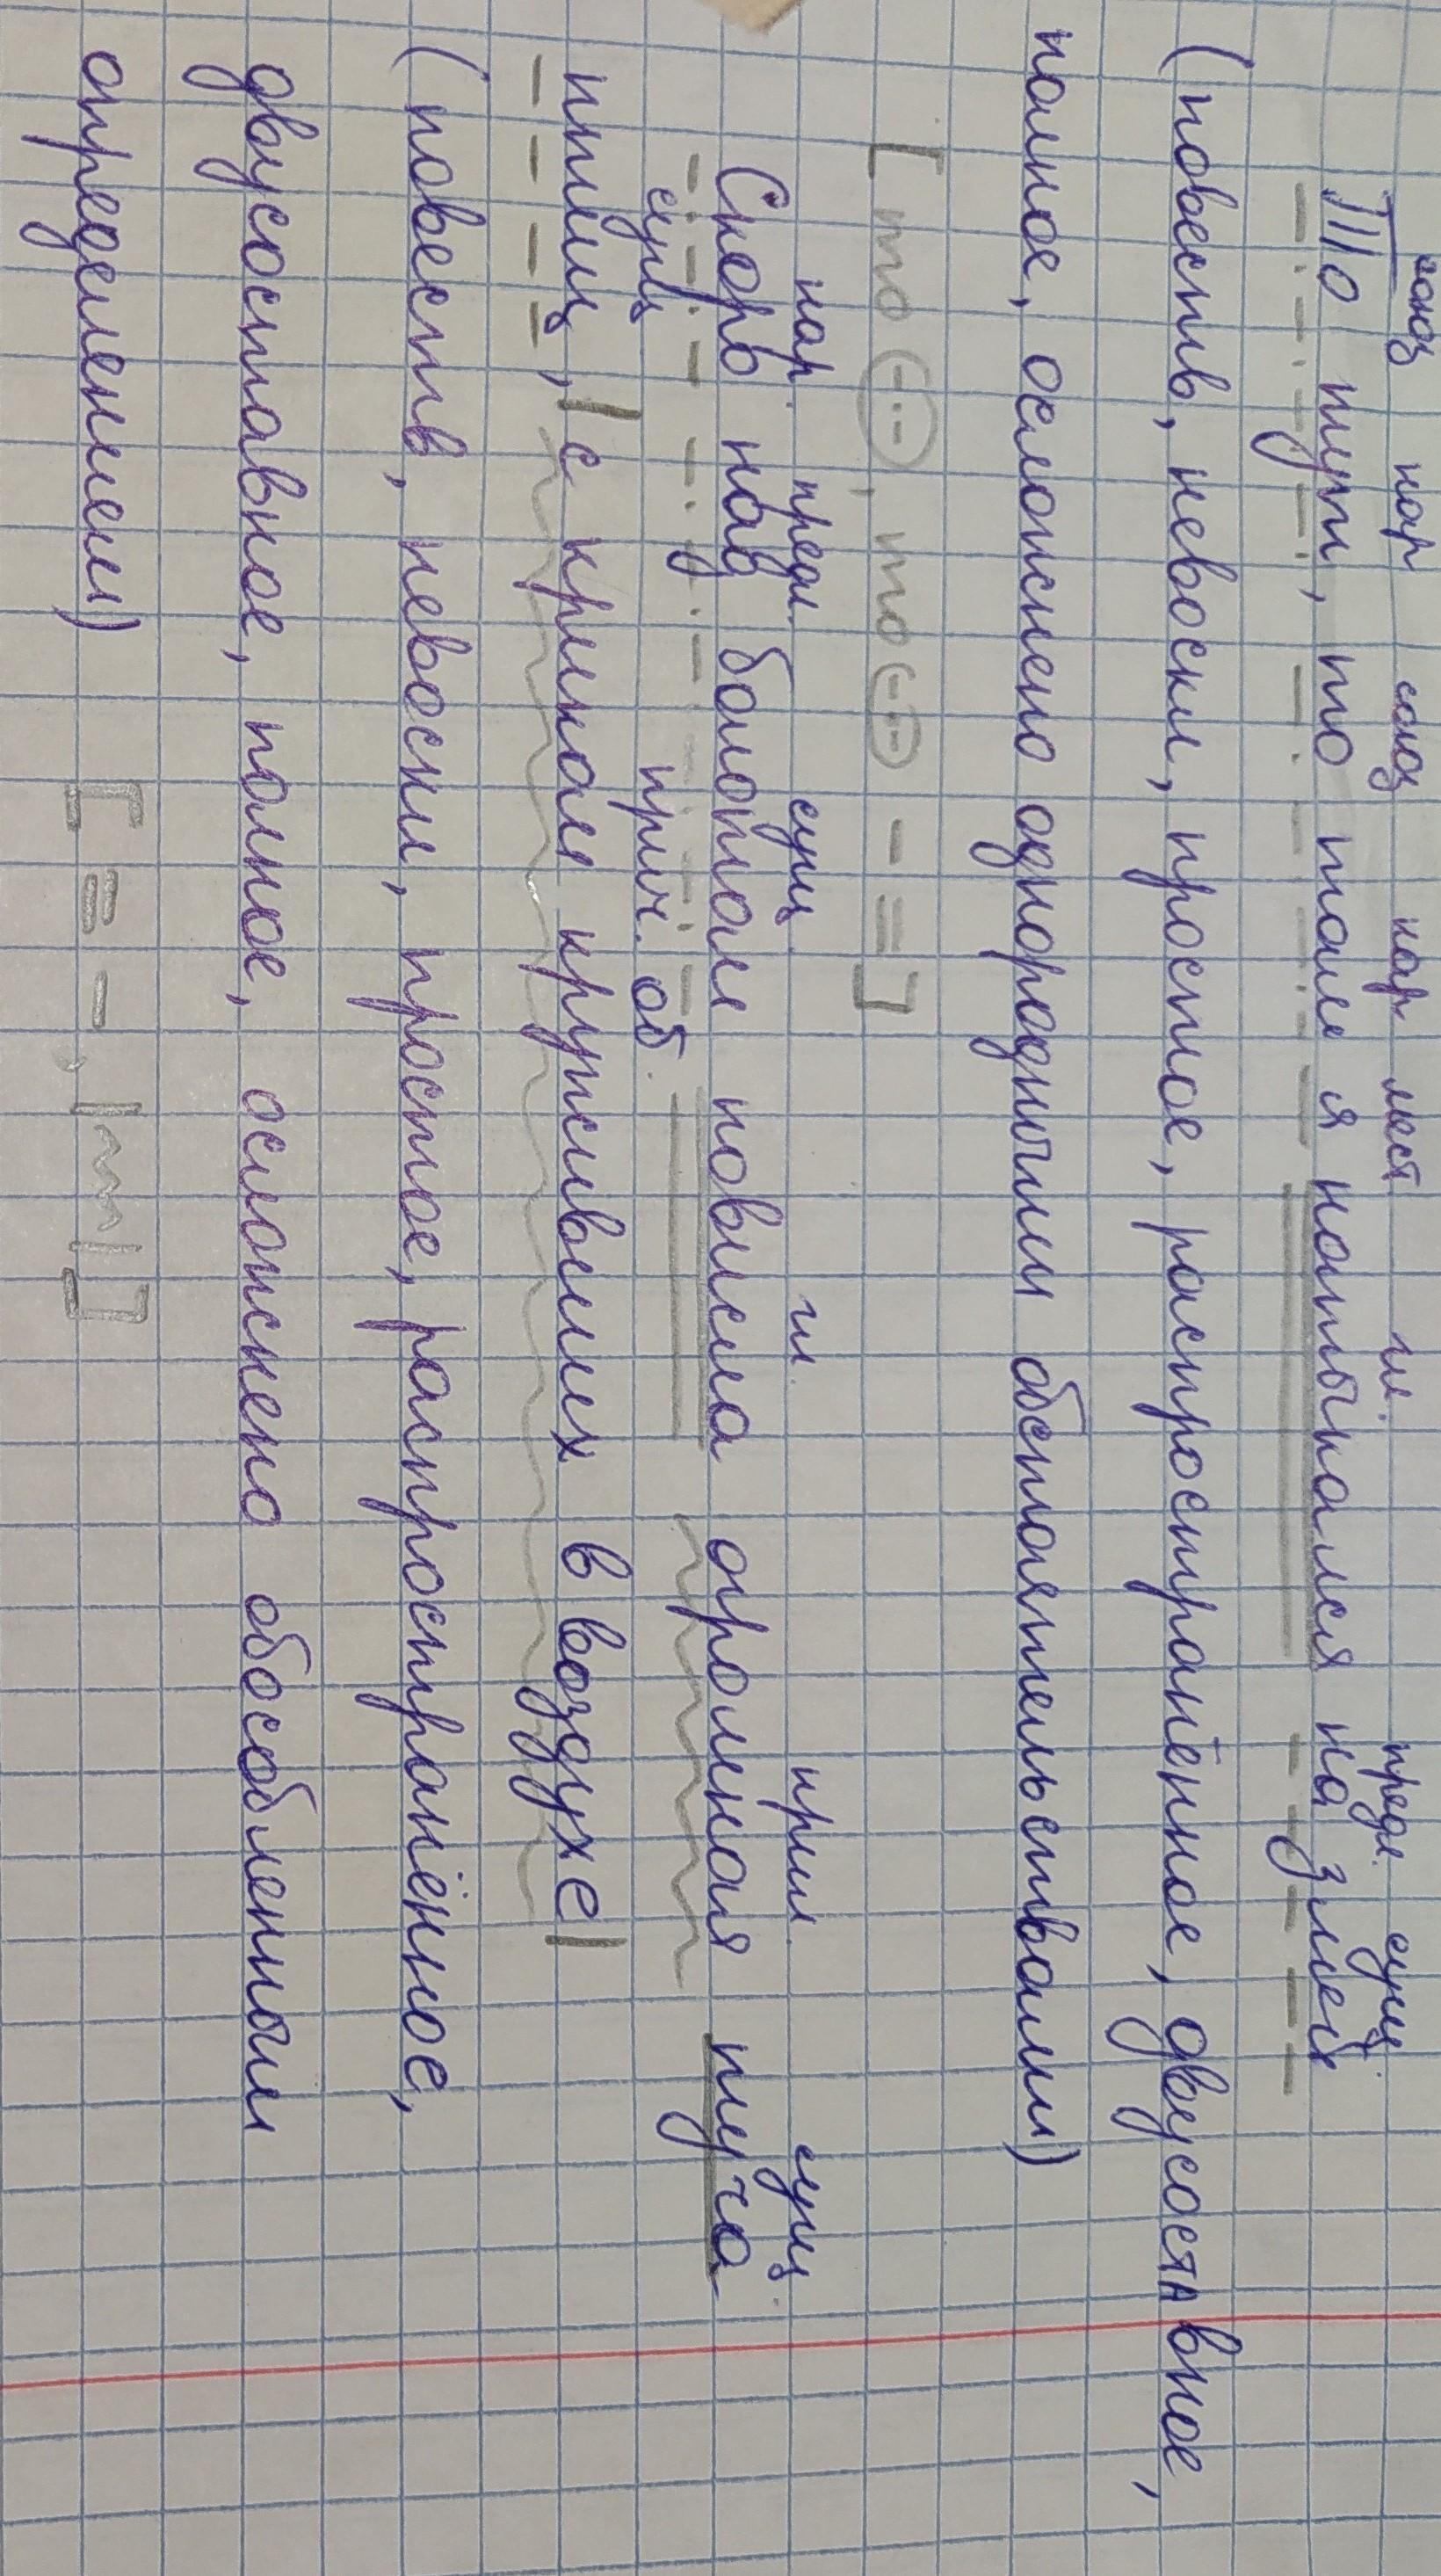 союз нар союз нар мест гл. предл. сущ.
То тут, то там я натыкался на змей
(повеств, невоскл, простое, распространённое, двусоставное,
полное, осложнено однородными обстоятельствами)
[ то (-·-), то (-·-) - = ]
нар. предл. сущ. гл. прил. сущ.
Скоро над болотом повисла огромная туча
сущ прич. об.
птиц, |с криком круживших в воздухе|
(повеств, невоскл, простое, распространённое,
двусоставное, полное, осложнено обособленным
определением) [ = - , |~~~| ]